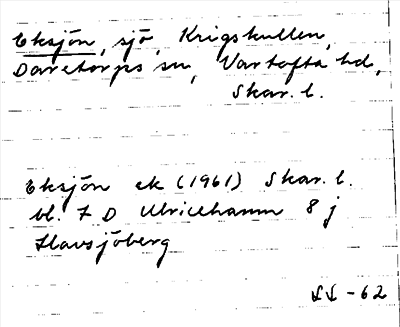 Eksjön, sjö, Krigskullen,
Daretorps sn, Vartofta hd,
Skar. l.
Eksjön ek (1961) Skar. l.
bl. 7 D Ulricehamn 8 j
Havsjöberg
-62